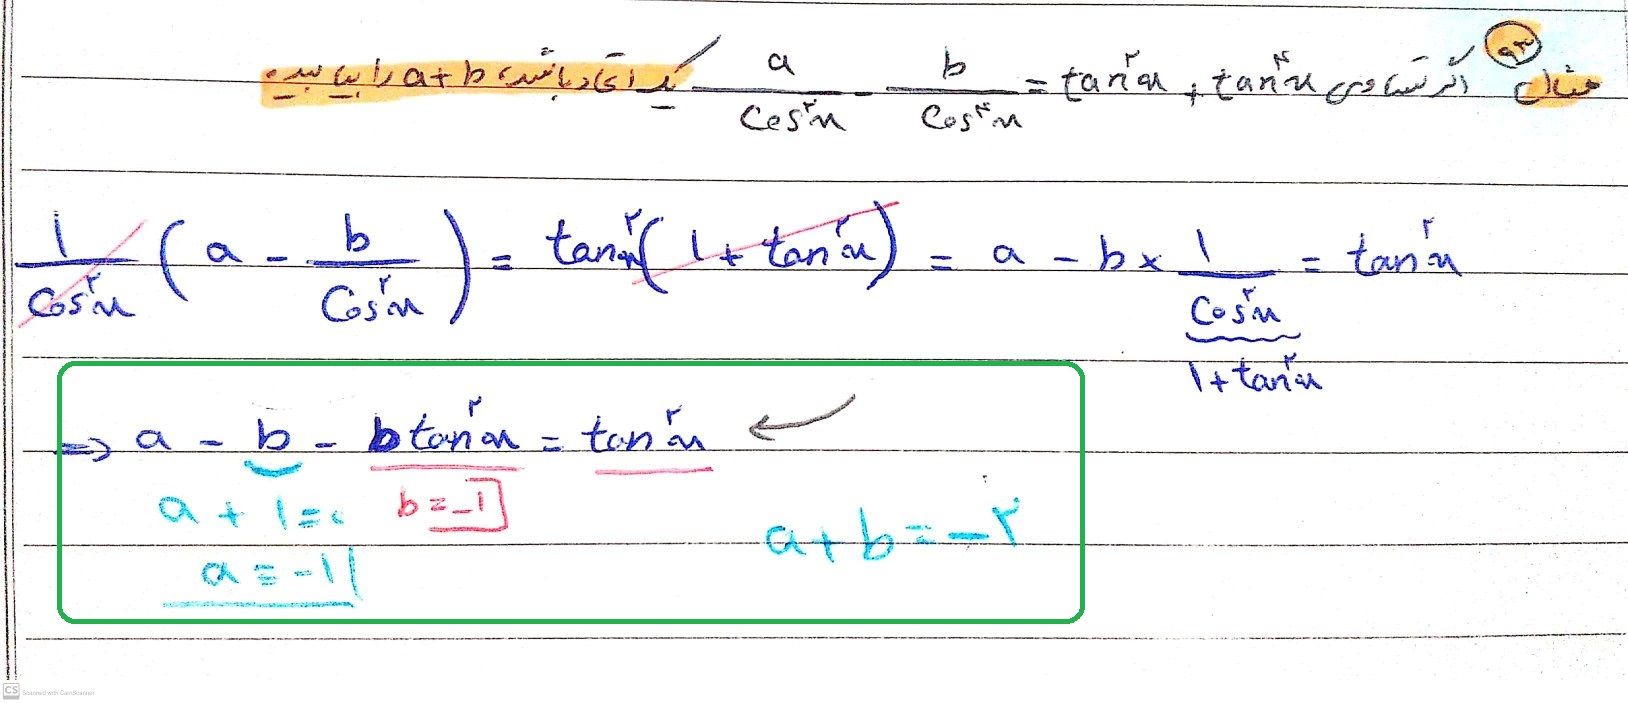 مثال ۹۳ اگر تساوی tan⁴x + tan²x = a/cos²x - b/cos⁴x یک اتحاد باشد، a+b را بیابید.
1/cos²x (a - b/cos²x) = tan²x (1 + tan²x) = a - b × 1/cos²x = tan²x
1 + tan²x
⇒ a - b - b tan²x = tan²x
a + 1 = 0 b = -1
a + b = -۲
a = -1
CS Scanned with CamScanner